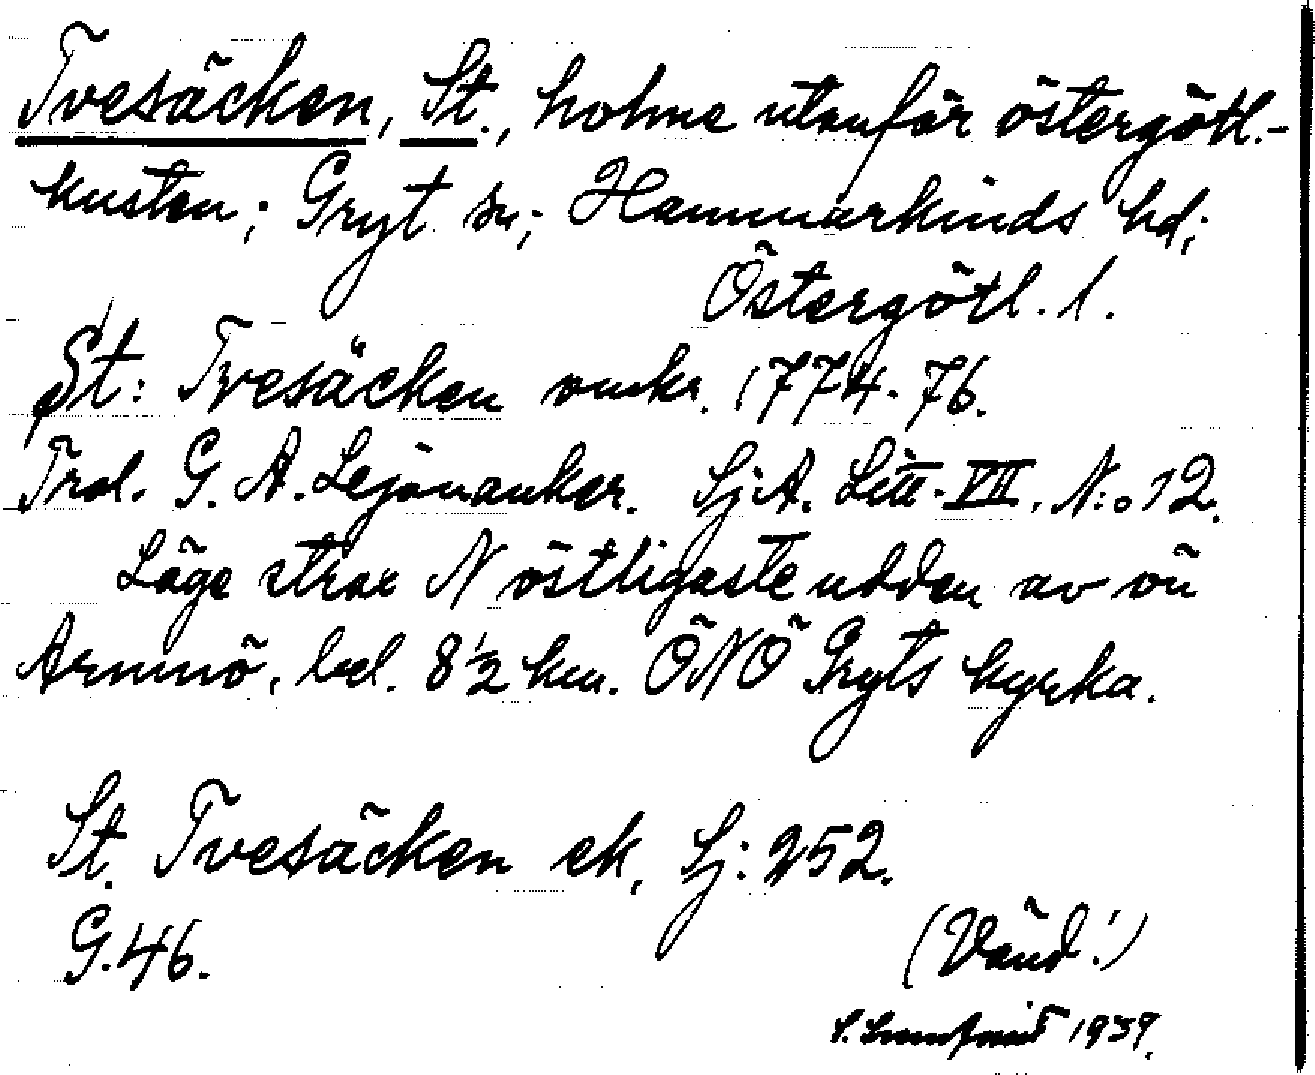 Tvesäcken, St., holme utanför östergötl.-
kusten; Gryt sn; Hammarkinds hd;
Östergötl. l.
St: Tvesäcken omkr. 1774-76.
Trol. G. A. Lejonanker. Sj:A. Litt. VII. N:o 12.
Läge strax N östligaste udden av ön
Armnö, bel. 8 1/2 km. ÖNÖ Gryts kyrka.
St. Tvesäcken ek, Sj: 252.
G. 46.
(Vänd!)
1939.